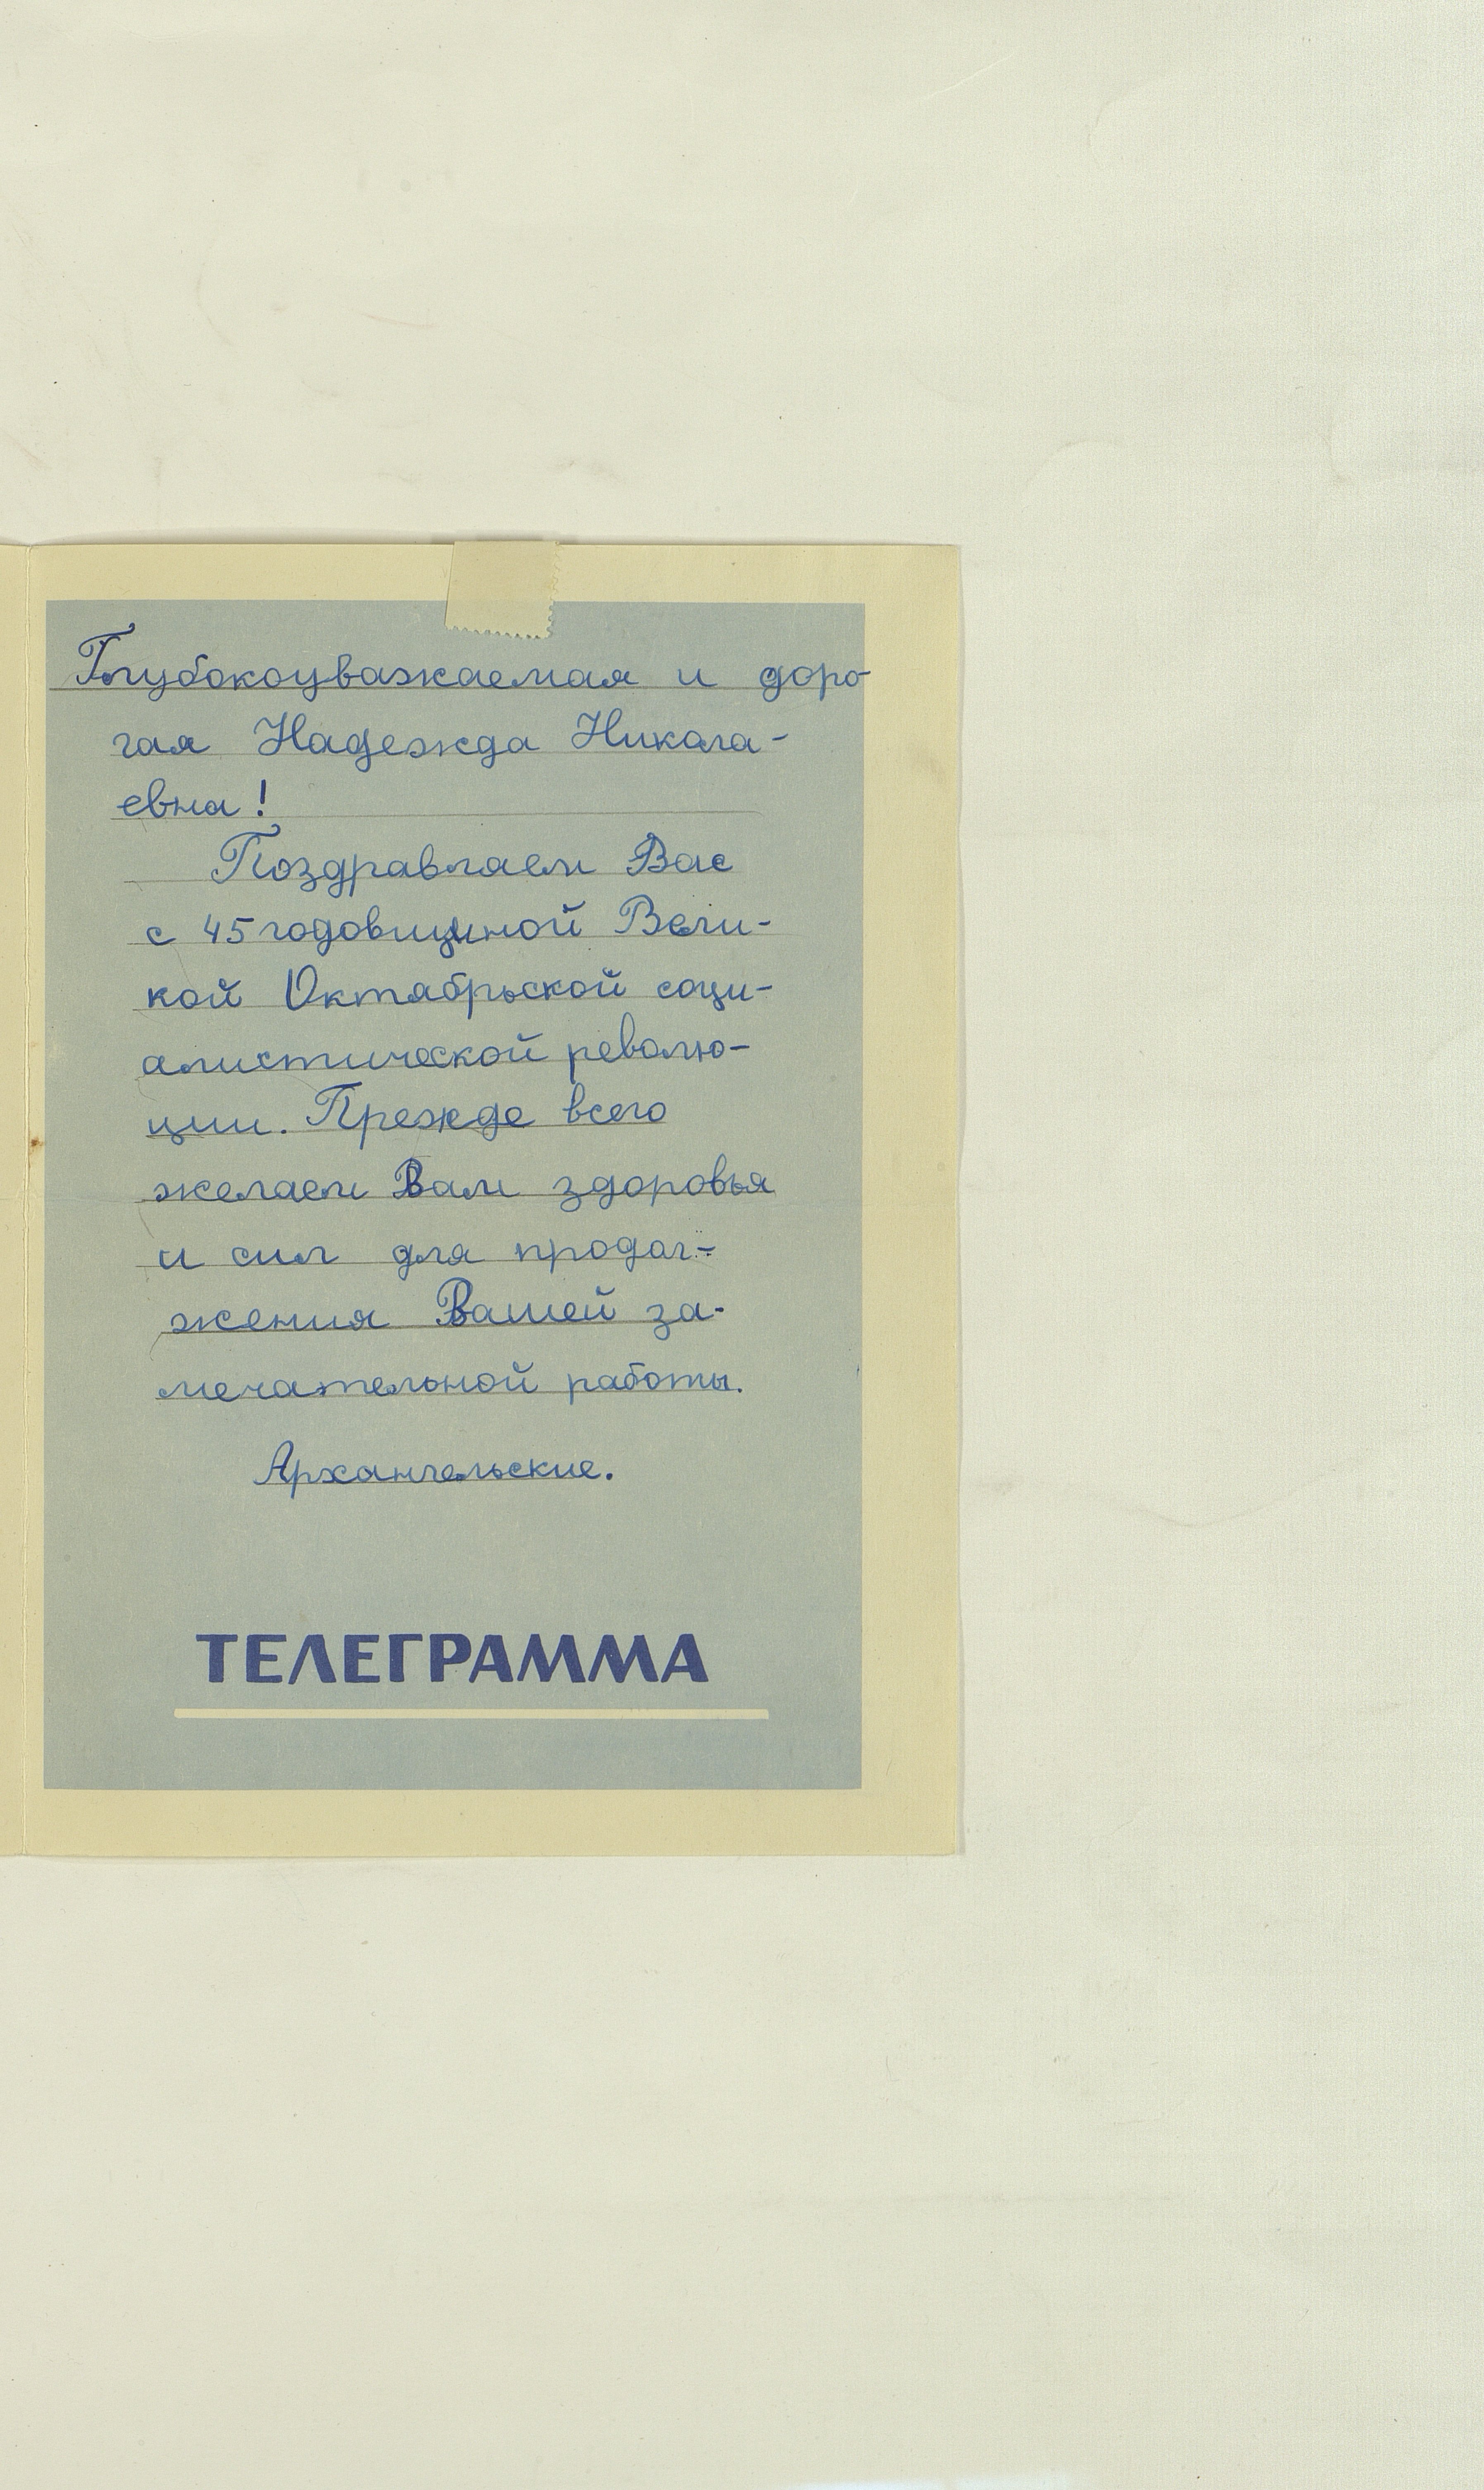 Глубокоуважаемая и доро-
гая Надежда Никола-
евна!
Поздравляем Вас
с 45 годовщиной Вели-
кой Октябрьской соци-
алистической револю-
ции. Прежде всего
желаем Вам здоровья
и сил для продол-
жения Вашей за-
мечательной работы.
Архангельские.
ТЕЛЕГРАММА